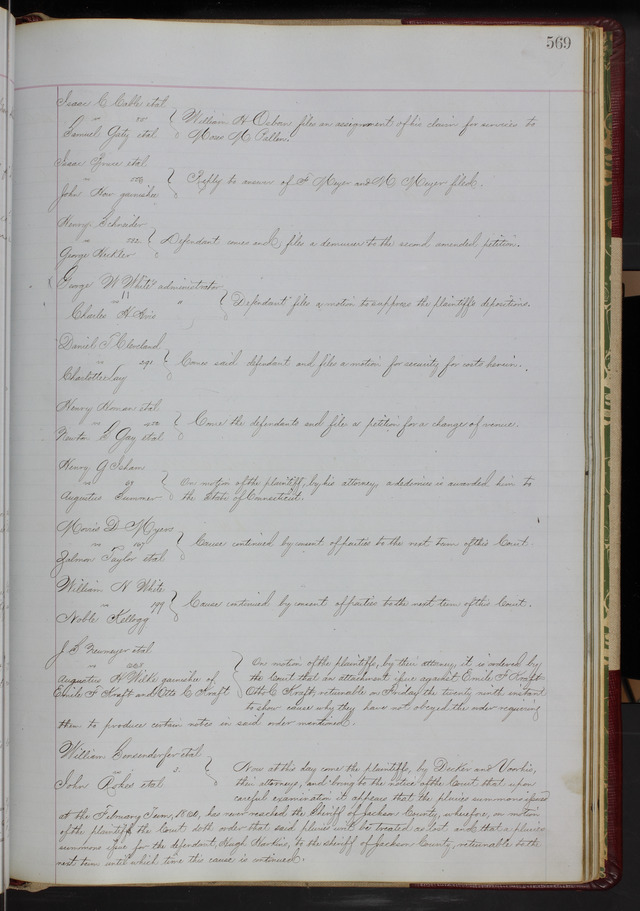 569
Isaac C Cable etal
vs
Samuel Gaty etal
William H Osborn files an assignment of his claim for services to
Moses M Pallen.
Isaac etal
vs
John How garnishee
Reply to answer of F Meyer and M Meyer filed.
Henry Schneider
vs 222
George Heckler
Defendant comes and files a demurrer to the second amended petition.
George W White administrator
vs 11
Charles H
Defendant files a motion to suppress the plaintiffs depositions.
Daniel T Cleveland
vs 291
Charlotte Jay
Comes said defendant and files a motion for security for costs herein.
Henry etal
vs
Newton L Gay etal
Come the defendants and file a petition for a change of venue.
Henry G Isham
vs
Augustus Summer
On motion of the plaintiff, by his attorney, a dedimus is awarded him to
the State of Connecticut.
Morris D Myers
vs
Zalmon Taylor etal
Cause continued by consent of parties to the next term of this Court.
William N White
vs 199
Noble Kellogg
Cause continued by consent of parties to the next term of this Court.
J S etal
vs
Augustus H Wilke garnishee of
Emile F Kraft and Otto C Kraft
On motion of the plaintiffs, by their attorney, it is ordered by
the Court that an attachment issue against Emile F Kraft
Otto C Kraft, returnable on Friday the twenty ninth instant
to show cause why they have not obeyed the order requiring
them to produce certain notes in said order mentioned.
William etal
vs 3.
John etal
Now at this day come the plaintiffs, by Decker and Voorhis,
their attorneys, and bring to the notice of the Court that upon
careful examination it appears that the pluries summons issued
at the February Term, 1861, has never reached the Sheriff of Jackson County, wherefore, on motion
of the plaintiffs the Court doth order that said pluries writ be treated as lost and that a pluries
summons issue for the defendant Hugh to the sheriff of Jackson County, returnable to the
next term until which time this cause is continued.